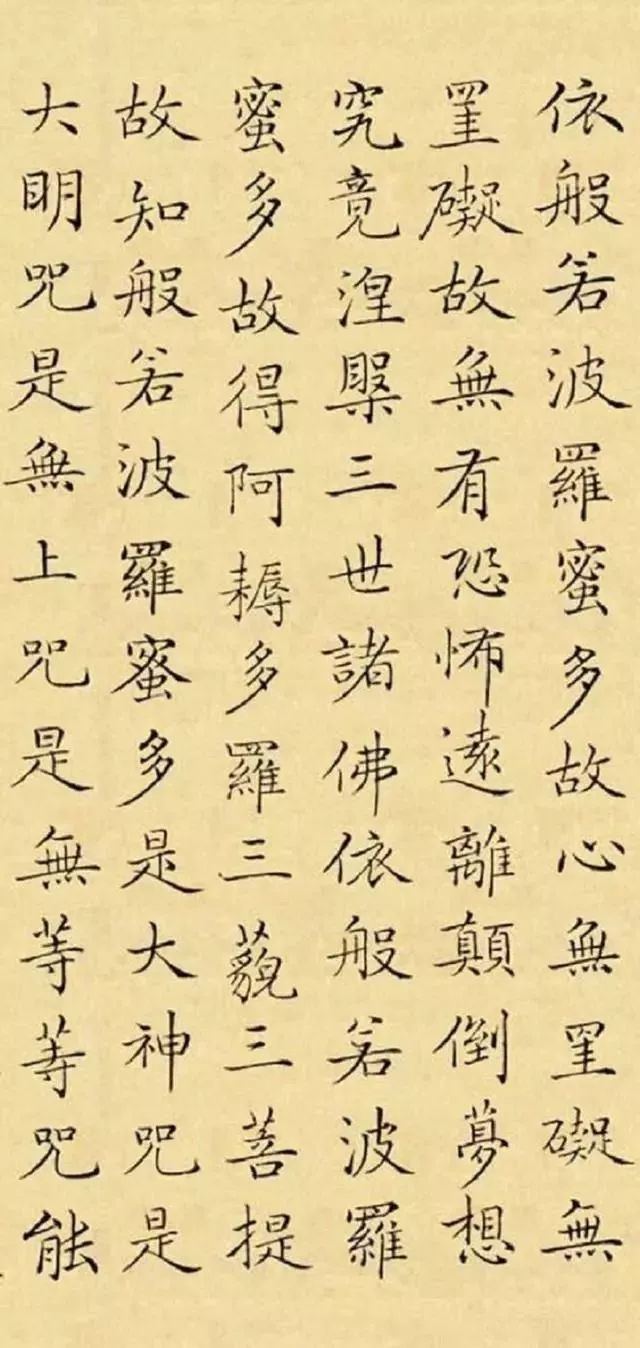 依般若波羅蜜多故心無罣礙無
罣礙故無有恐怖遠離顛倒夢想
究竟涅槃三世諸佛依般若波羅
蜜多故得阿耨多羅三藐三菩提
故知般若波羅蜜多是大神咒是
大明咒是無上咒是無等等咒能